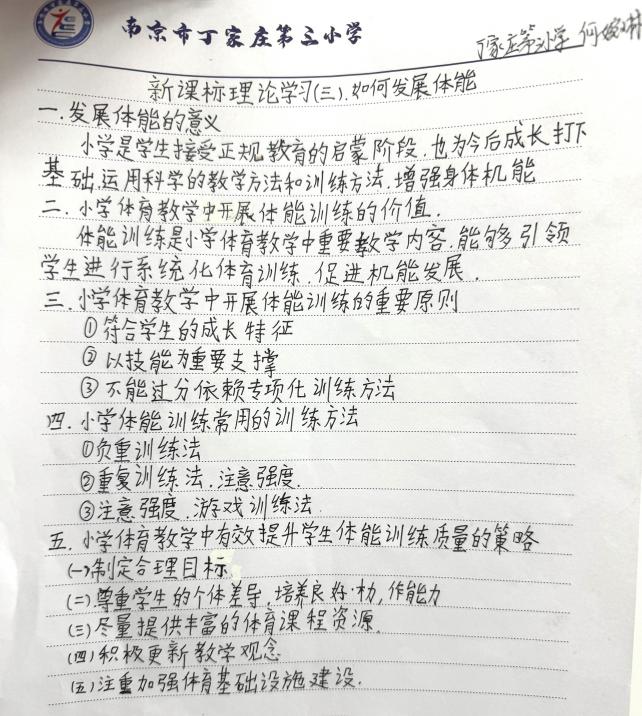 南京市丁家庄第三小学
丁家庄第三小学 何
新课标理论学习(三).如何发展体能
一.发展体能的意义
小学是学生接受正规教育的启蒙阶段.也为今后成长打下
基础.运用科学的教学方法和训练方法.增强身体机能
二.小学体育教学中开展体能训练的价值.
体能训练是小学体育教学中重要教学内容.能够引领
学生进行系统化体育训练.促进机能发展.
三.小学体育教学中开展体能训练的重要原则
①符合学生的成长特征
②以技能为重要支撑
③不能过分依赖专项化训练方法
四.小学体能训练常用的训练方法
①负重训练法
②重复训练法.注意强度.
③注意强度.游戏训练法
五.小学体育教学中有效提升学生体能训练质量的策略
(一)制定合理目标
(二)尊重学生的个体差异,培养良好协作能力
(三)尽量提供丰富的体育课程资源.
(四)积极更新教学观念
(五)注重加强体育基础设施建设.